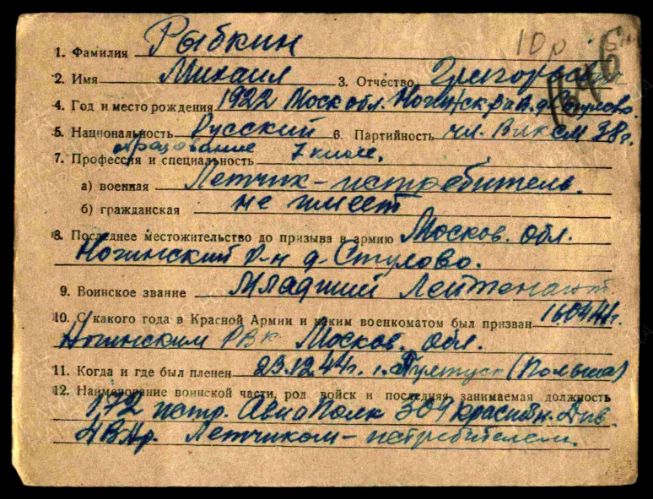 10р
646
1. Фамилия Рыбкин
2. Имя Михаил 3. Отчество Григорьевич
4. Год и место рождения 1922 Моск обл. Ногинск р-н д. Стулово
5. Национальность Русский 6. Партийность чл. Влксм 38г.
образование 7 класс.
7. Профессия и специальность
а) военная Летчик-истребитель.
б) гражданская не имеет
8. Последнее местожительство до призыва в армию Москов. обл.
Ногинский р-н д. Стулово.
9. Воинское звание Младший Лейтенант
10. С какого года в Красной Армии и каким военкоматом был призван
Ногинским РВК Москов. обл.
11. Когда и где был пленен 23.12.44г. г. Пултуск (Польша)
12. Наименование воинской части, род войск и последняя занимаемая должность
172 истр. АвиаПолк 309 красн Див.
Летчиком-истребителем.